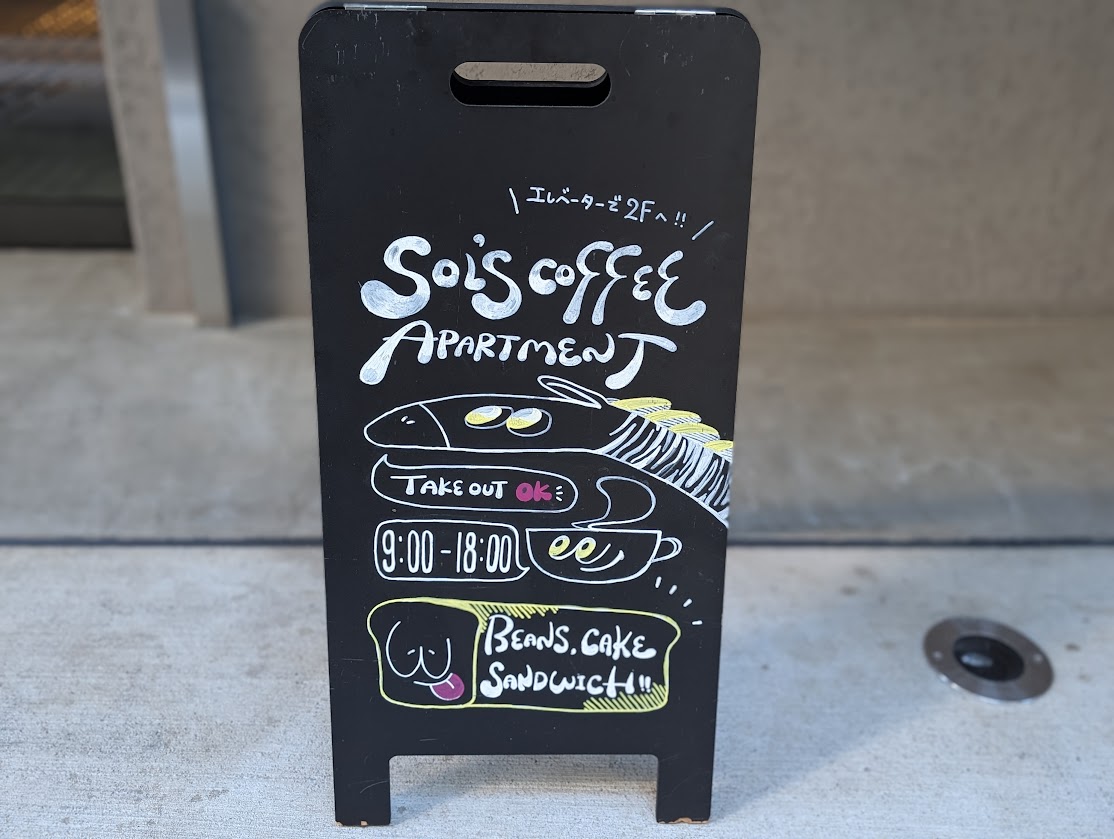 エレベーターで2Fへ!!
SOL'S COFFEE
APARTMENT
TAKE OUT OK
9:00-18:00
BEANS. CAKE
SANDWICH!!